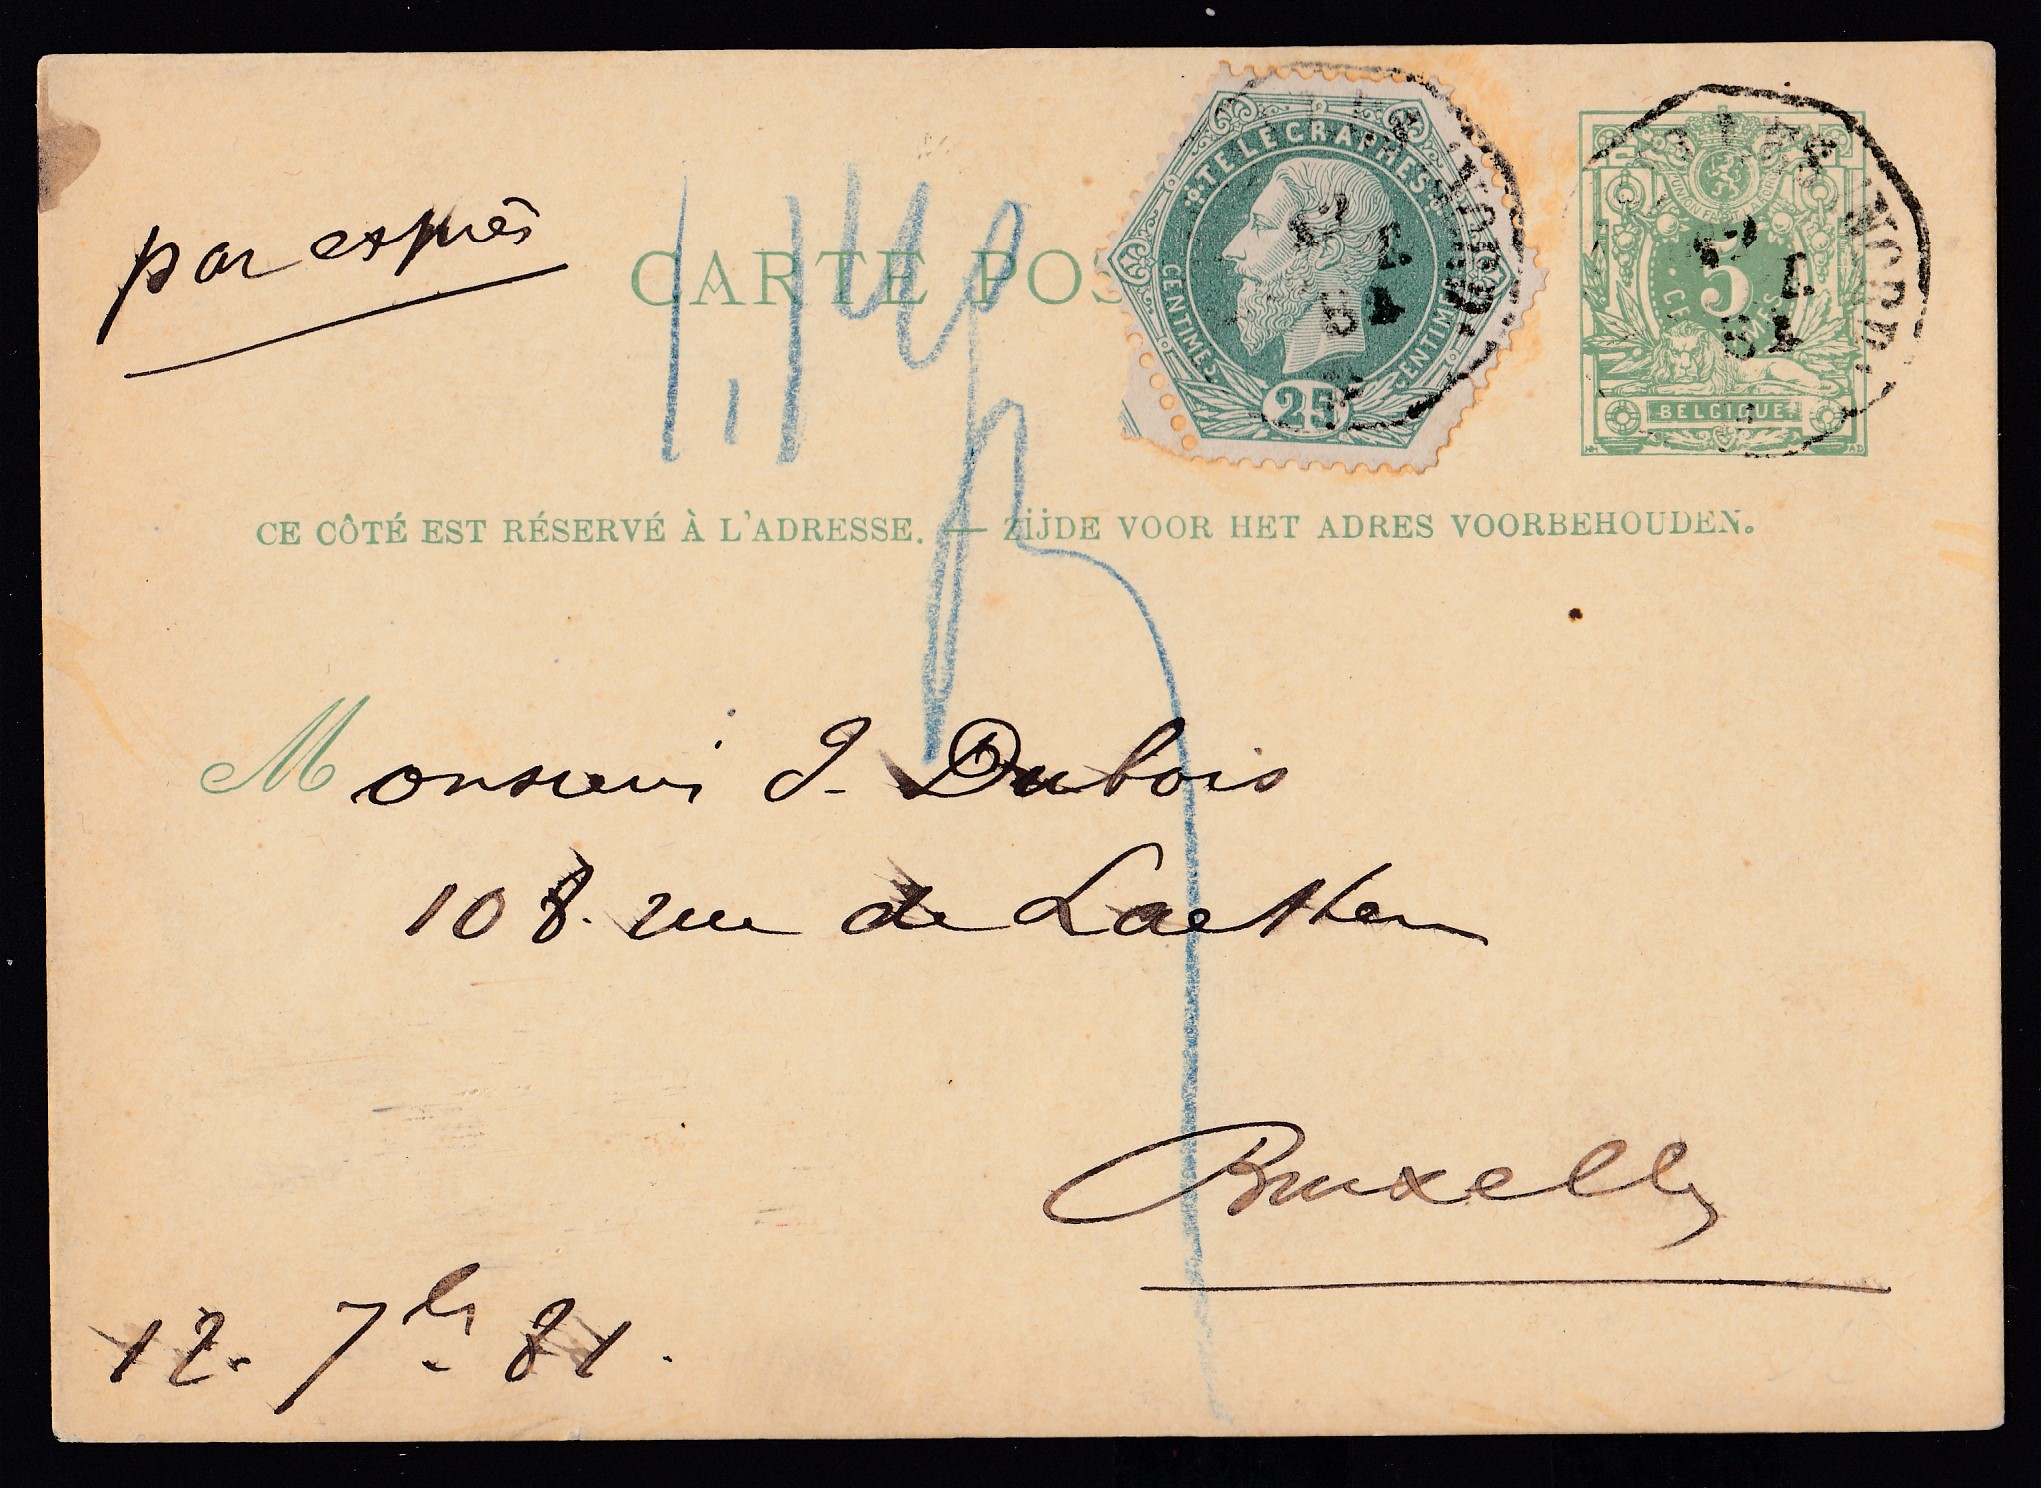 par exprès
CARTE POS
TÉLÉGRAPHES
CENTIMES
CENTIMES
25
UNION FAIT LA
5
CENTIMES
BELGIQUE
CE CÔTÉ EST RÉSERVÉ À L'ADRESSE. — ZIJDE VOOR HET ADRES VOORBEHOUDEN.
Monsieur J. Dubois
108. rue de Laeken
Bruxelles
12. 7bre 81.